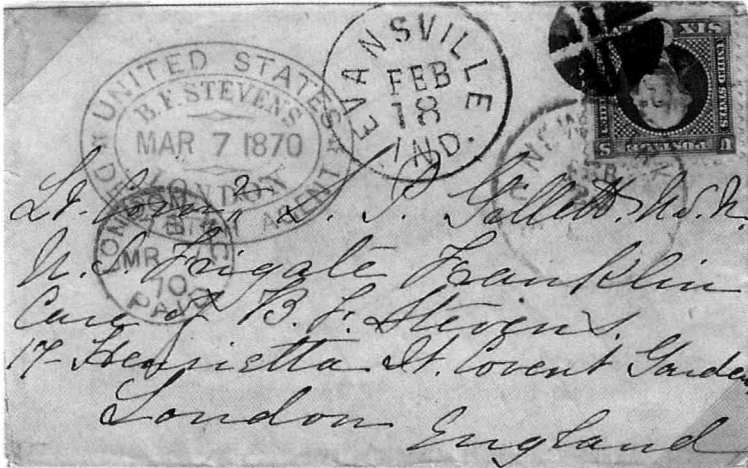 UNITED STATES
B. F. STEVENS
MAR 7 1870
LONDON
DESPATCH AGENT
EVANSVILLE
FEB
18
IND.
NEW YORK
U.S. POSTAGE
SIX
LONDON
MR
70
PAID
Lt. Com. S. P. Gillett. U.S.N.
U. S. Frigate Franklin
Care of B. F. Stevens.
17 Henrietta St. Covent Garden
London
England